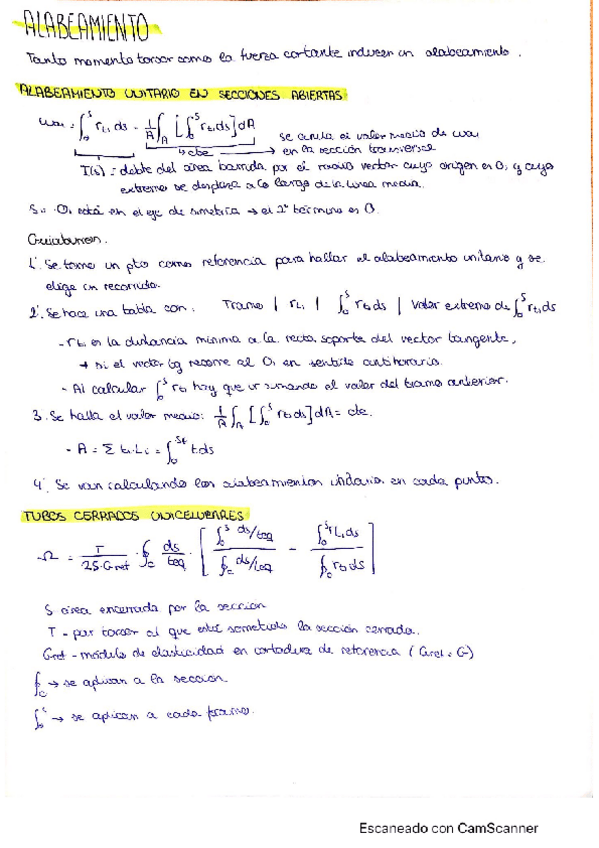 ALABEAMIENTO
Tanto momento torsor como la fuerza cortante inducen un alabeamiento.
ALABEAMIENTO UNITARIO EN SECCIONES ABIERTAS
ωα₁ = ∫₀ˢ r_t₁ ds - 1/A ∫_A [∫₀ˢ r_t₁ ds] dA
→ cte
se anula el valor medio de ωα₁
en la sección transversal
I(s) = doble del área barrida por el radio vector cuyo origen es O₁ y cuyo
extremo se desplaza a lo largo de la línea media.
Si O₁ está en el eje de simetría → el 2º término es 0.
1º. Se toma un pto como referencia para hallar el alabeamiento unitario y se
elige un recorrido.
2º. Se hace una tabla con: Tramo | r_t₁ | ∫₀ˢ r_t₁ ds | Valor extremo de ∫₀ˢ r_t₁ ds
- r_t₁ es la distancia mínima a la recta soporte del vector tangente,
+ si el vector tg recorre al O₁ en sentido antihorario.
- Al calcular ∫₀ˢ r_t₁ hay que ir sumando el valor del tramo anterior.
3. Se halla el valor medio: 1/A ∫_A [∫₀ˢ r_t₁ ds] dA = cte.
- A = Σ tᵢ·Lᵢ = ∫₀ t ds
4º. Se van calculando los alabeamientos unitarios en cada punto.
TUBOS CERRADOS UNICELULARES
Ω = T/(2S·Gref) · ∮_c ds/teq · [ ∫₀ˢ ds/teq / ∮_c ds/teq - ∫₀ˢ r_t₁ ds / ∮_c r_t₁ ds ]
S área encerrada por la sección
T - par torsor al que esté sometida la sección cerrada.
Gref - módulo de elasticidad en cortadura de referencia (Gref = G)
∮_c → se aplican a la sección.
∫₀ˢ → se aplican a cada tramo.
Escaneado con CamScanner